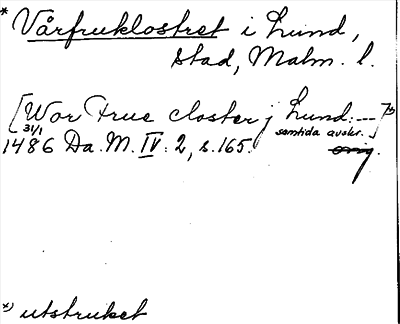 * Vårfruklostret i Lund,
stad, Malm. l.
[Wor Frue closter j Lund: --- ]*)
31/1 samtida avskr.
1486 Da. M. IV: 2, s. 165. orig.
*) utstruket